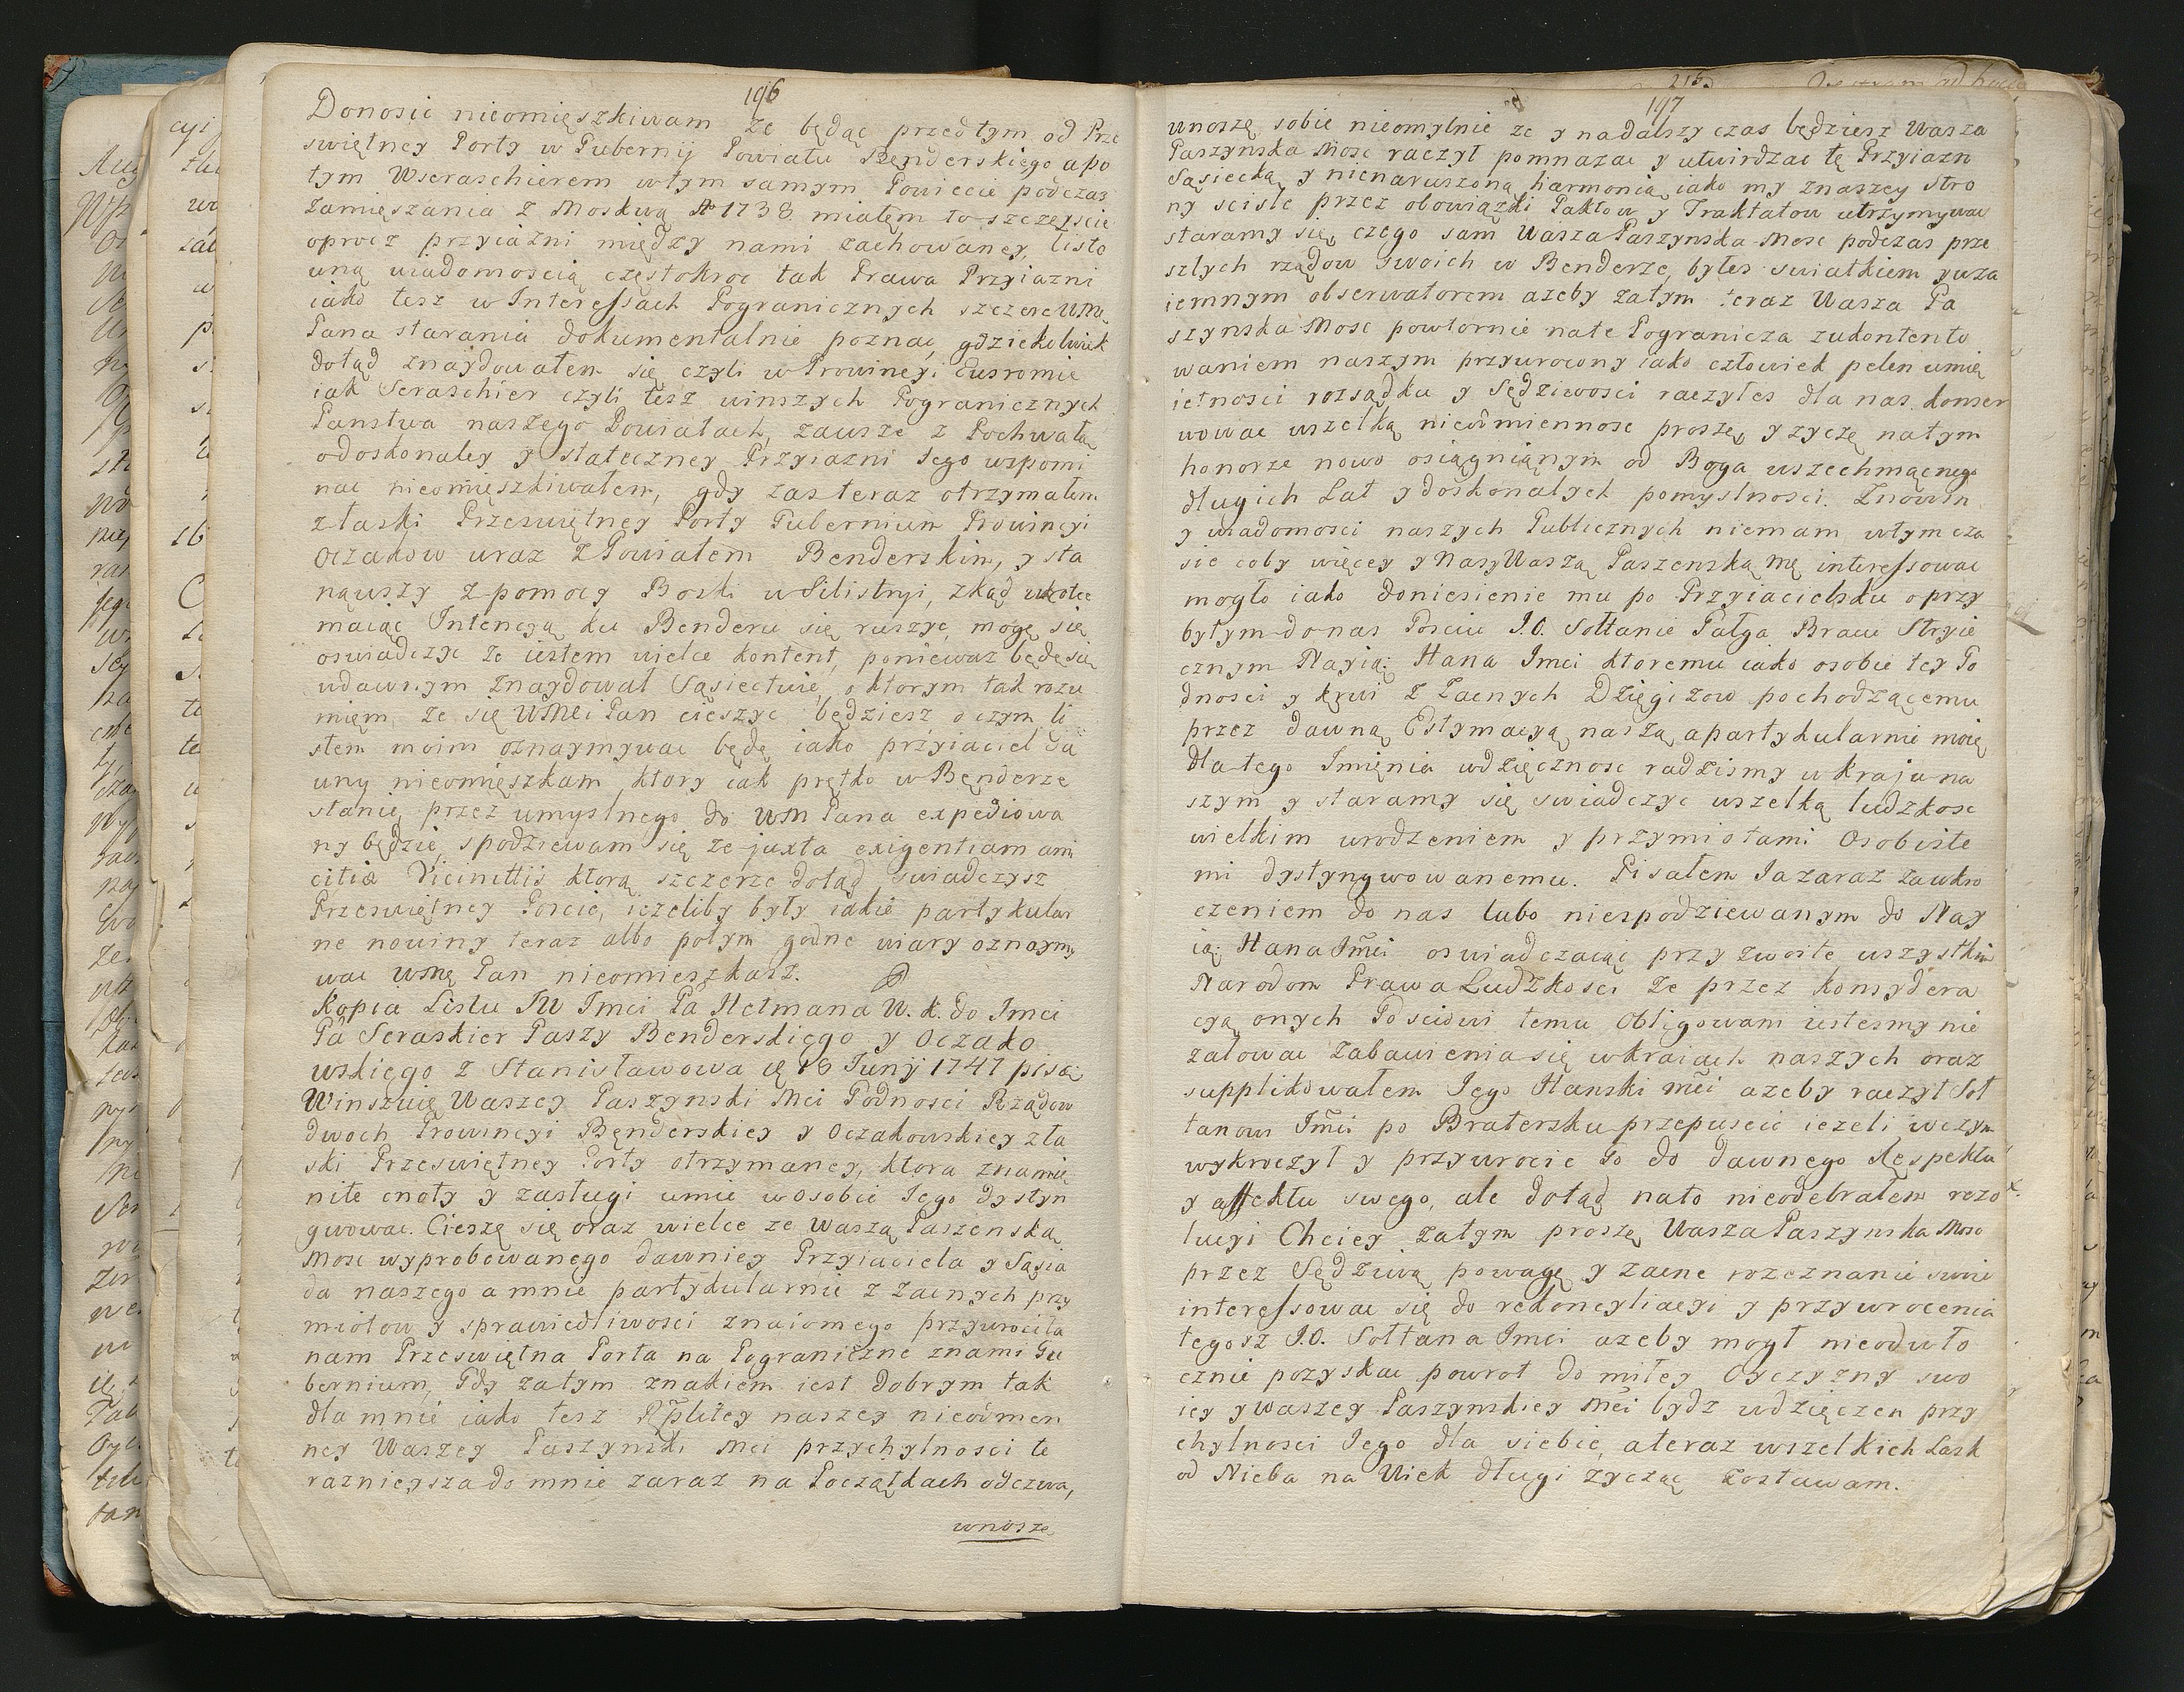 196
Donosic nieomięszkiwam ze będąc przedtym od Prze
swiętney Porty w Gubernij Powiatu Benderskiego apo
tym Wseraschierem wtym samym Powiecie podczas
Zamięszania z Moskwą Ao 1738 miałem to szczęscie
oprocz przyiazni między nami zachowaney, listo
wną wiadomoscią częstokroc tak Prawa Przyiazni
iako tesz w Interessach Pogranicznych szczere WM
Pana starania dokumentalnie poznac, gdziekolwiek
dotąd znaydowałem się czyli w Prowincyi
iak Seraschier czyli tesz winszych Pogranicznych
Panstwa naszego Powiatach, zawsze z Pochwałą
odoskonałey y stateczney Przyiazni Jego wspomi
nac nieomięszkiwałem, gdy zas teraz otrzymałem
złaski Przeswiętney Porty Gubernium Prowincyi
Oczakow wraz z Powiatem Benderskim, y sta
nąwszy z pomocy Boski w Silistryi, zkąd wkotce
maiąc Intencyą ku Benderu się ruszyc, mogę się
oswiadczyc ze iestem wielce kontent, poniewaz będę się
wdawnym znaydował Sąsiectwie, o ktorym tak rozu
miem, ze się WMci Pan cieszyc będziesz o czym li
stem moim oznaymywac będę iako przyiaciel Ja
wny nieomięszkam, ktory iak prętko w Benderze
stanie, przez umyslnego do WM Pana expediowa
ny będzie, spodziewam się ze juxta exigentiam ami
citiæ Vicinittis ktorą szczerze dotąd swiadczysz
Przeswiętney Porcie, iezeliby były iakie partykular
ne nowiny teraz albo potym godne wiary oznaymy
wac WMę Pan nieomieszkasz.
Kopia Listu JW Imci Pa Hetmana W. K. do Imci
Pa Seraskier Paszy Benderskiego y Oczako
wskiego z Stanisławowa 16 Junij 1747 pisa:
Winszuię Waszey Paszynski Mci Godnosci Rządow
dwoch Prowincyi Benderskiey y Oczakowskiey zła
ski Przeswiętney Porty otrzymaney, ktora znamie
nite cnoty y zasługi umie w osobie Jego dystyn
gwowac. Cieszę się oraz wielce ze Waszą Paszenską
Mosc wyprobowanego dawniey Przyiaciela y Sąsia
da naszego a mnie partykularnie z Zacnych przy
miotow y sprawiedliwosci znaiomego przywrociła
nam Przeswiętna Porta na Pograniczne znami Gu
bernium, Gdy zatym znakiem iest dobrym tak
dla mnie iako tesz Rzpltey naszey nieodmen
ney Waszey Paszynski Mci przychylnosci te
raznieysza do mnie zaraz na Początkach odezwa,
wnoszę
197
wnoszę sobie nieomylnie ze y nadalszy czas będziesz Wasza
Paszynska Mosc raczył pomnazac y utwirdzac tę Przyiazn
Sąsiecką y nienaruszoną harmonią iako my znaszey Stro
ny scisle przez obowiązki Paktow y Traktatow utrzymywac
staramy się, czego sam Wasza Paszynska Mosc podczas prze
szłych rządow swoich w Benderze, byłes swiatkiem y wza
iemnym obserwatorem azeby zatym teraz Wasza Pa
szynska Mosc powtornie nate Pogranicza zukontento
waniem naszym przywrocony iako człowiek pelen umię
ietnosci rozsądku y Sędziwosci raczyłes dla nas konser
wowac wszelką nieodmiennosc proszę, y zyczę natym
honorze nowo osiągnionym od Boga wszechmącnego
długich Lat y doskonałych pomyslnosci. Znowin
y wiadomosci naszych Publicznych niemam wtym cza
sie coby więcey y Nas y Waszą Paszenską Mę interessowac
mogło iako doniesienie mu po Przyiacielsku o przy
byłym do nas Gosciu J.O. Sołtanie Gałga Bracie Stryie
cznym Nayia: Hana Imci ktoremu iako osobie tey Go
dnosci y krwi z Zacnych Dzięgizow pochodzącemu
przez dawną Estymacyą naszą, a partykularnie moię
dla tego Imięnia wdzięcznosc radzismy w kraju na
szym y staramy się swiadczyc wszelką ludzkosc
wielkim urodzeniem y przymiotami Osobiste
mi dystyngwowanemu. Pisałem Ja zaraz zawkro
czeniem do nas lubo niespodziewanym do Nay
ia: Hana Imci oswiadczaiąc przyzwoite wszystkim
Narodom Prawa Ludzkosci ze przez konsydera
cyą onych Gosciowi temu Obligowani iestesmy nie
załowac zabawienia się w kraiach naszych oraz
supplikowałem Jego Hanski Mci azeby raczył Soł
tanowi Imci po Bratersku przepuscic iezeli wczym
wykroczył y przywrocic Go do dawnego Respektu
y affektu swego, ale dotąd nato nieodebrałem rezo
lucyi Chciey zatym proszę Wasza Paszynska Mosc
przez Sędziwą powagę y zacne rozeznanie swoie
interessowac się do rekoncyliacyi y przywrocenia
tegosz J.O. Sołtana Imci azeby mogł nieodwło
cznie pozyskac powrot do miłey Oyczyzny swo
iey y waszey Paszynskiey Mci bydz wdzięczen przy
chylnosci Jego dla siebie, a teraz wszelkich Lask
od Nieba na Wiek długi zycząc zostawam.